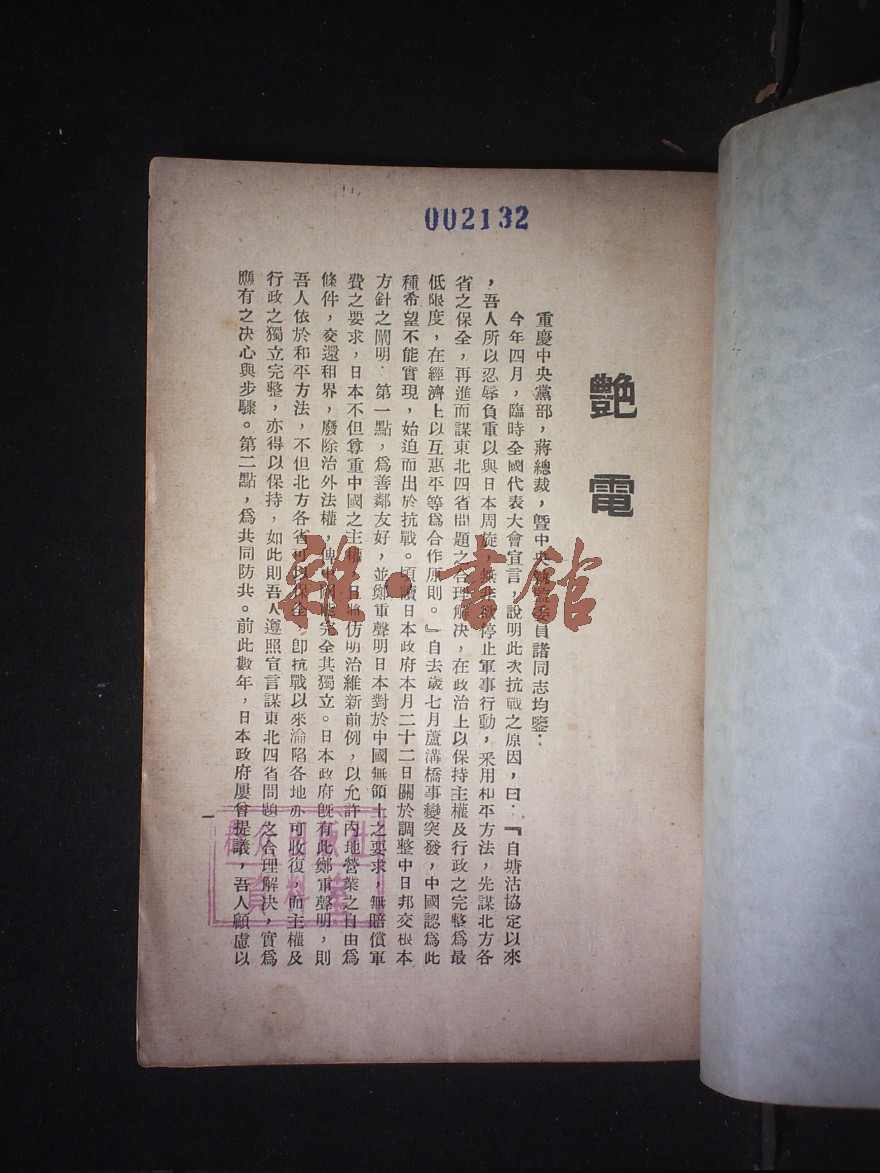 002132
艷電
重慶中央黨部，蔣總裁，暨中央執監委員諸同志均鑒：
今年四月，臨時全國代表大會宣言，說明此次抗戰之原因，曰：『自塘沽協定以來
，吾人所以忍辱負重以與日本周旋，無非欲停止軍事行動，釆用和平方法，先謀北方各
省之保全，再進而謀東北四省問題之合理解決，在政治上以保持主權及行政之完整爲最
低限度，在經濟上以互惠平等爲合作原則。』自去歲七月蘆溝橋事變突發，中國認爲此
種希望不能實現，始迫而出於抗戰。頃讀日本政府本月二十二日關於調整中日邦交根本
方針之闡明：第一點，爲善鄰友好，並鄭重聲明日本對於中國無領土之要求，無賠償軍
費之要求，日本不但尊重中國之主權，且將仿明治維新前例，以允許內地營業之自由爲
條件，交還租界，廢除治外法權，俾中國能完全其獨立。日本政府旣有此鄭重聲明，則
吾人依於和平方法，不但北方各省可以保全，卽抗戰以來淪陷各地亦可收復，而主權及
行政之獨立完整，亦得以保持，如此則吾人遵照宣言謀東北四省問題之合理解決，實爲
應有之决心與步驟。第二點，爲共同防共。前此數年，日本政府屢曾提議，吾人顧慮以
一
雜·書館
出版社
資料室